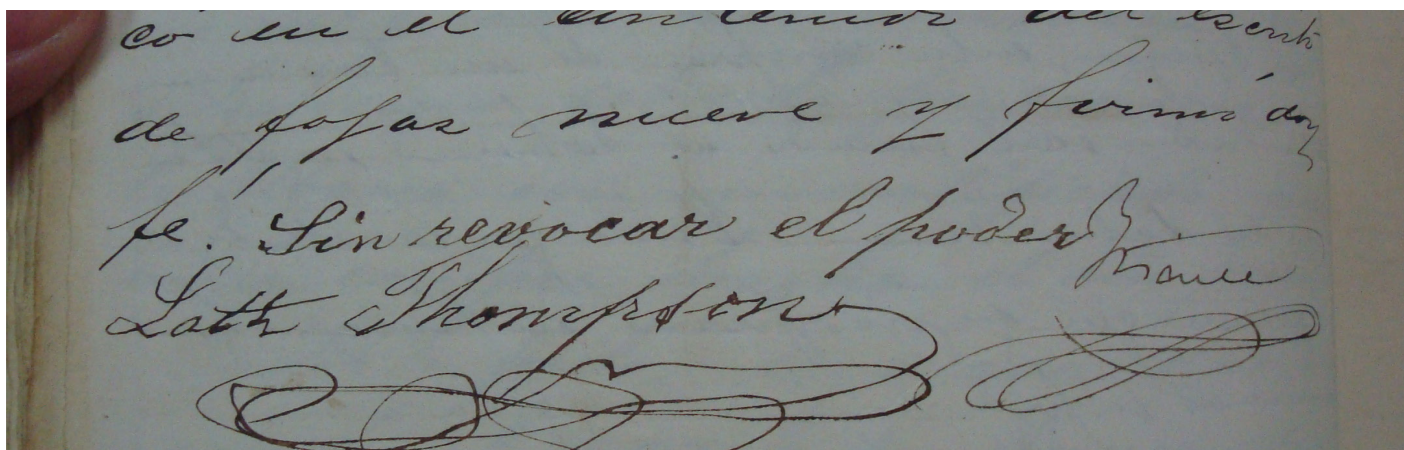 co en el tenor del escrito
de fojas nueve y firmó doy
fé. Sin revocar el poder
Lath Thompson